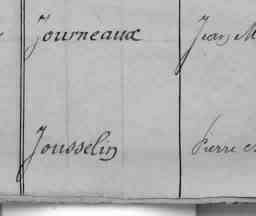 Journeaux Jean M
Jousselin Pierre